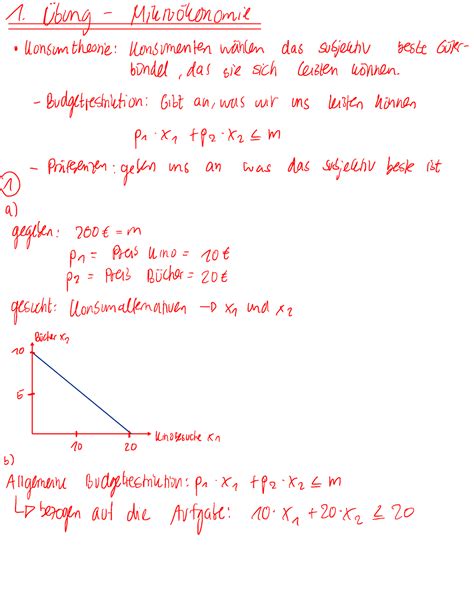 1. Übung - Mikroökonomie
• Konsumtheorie: Konsumenten wählen das subjektiv beste Güter-
bündel, das sie sich leisten können.
- Budgetrestriktion: Gibt an, was wir uns leisten können
p₁ · x₁ + p₂ · x₂ ≤ m
- Präferenzen: geben uns an was das subjektiv beste ist
1
a)
gegeben: 200€ = m
p₁ = Preis Kino = 10€
p₂ = Preis Bücher = 20€
gesucht: Konsumalternativen → x₁ und x₂
Bücher x₂
10
5
10 20 Kinobesuche x₁
b)
Allgemeine Budgetrestriktion: p₁ · x₁ + p₂ · x₂ ≤ m
↳ bezogen auf die Aufgabe: 10 · x₁ + 20 · x₂ ≤ 20